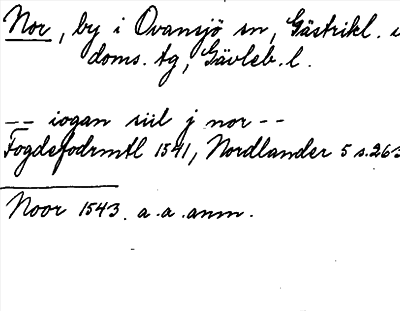 Nor, by i Ovansjö sn, Gästrikl. ö
doms. tg, Gävleb. l.
-- iogan siil j nor --
Fogdefodrmtl 1541, Nordlander 5 s. 263
Noor 1543. a. a. anm.